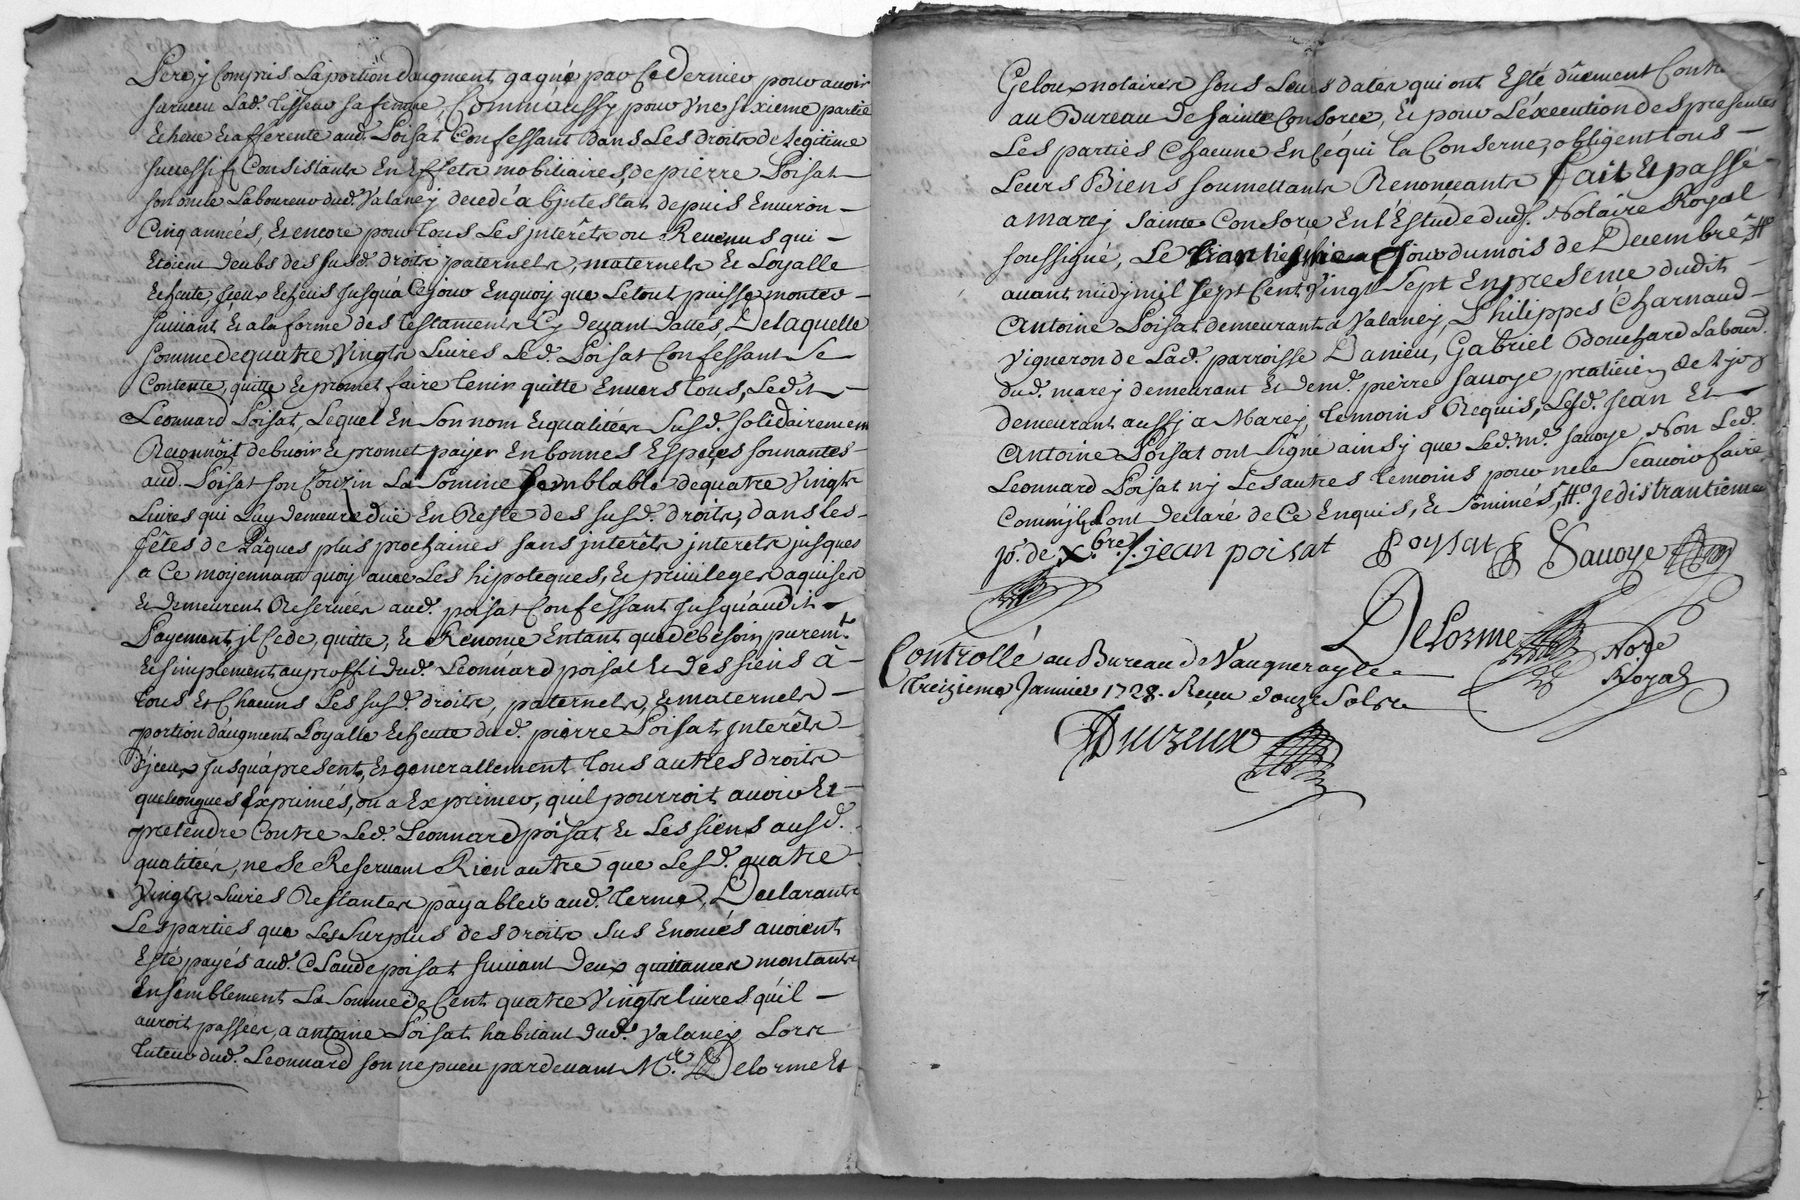 Pere, y Compris La portion daugment gagné par Ce dernier pour avoir
survecu Lad. Tisseur sa femme, Comm'aussy pour Une sixieme partie
Echeue et afferente aud. Poisat Confessant Dans Les droits de Legitime
successif Consistants En Effets mobiliaires de pierre Poisat
son oncle Laboureur dud. Valaney decedé abjntestat depuis Environ –
Cinq années, Et encore pour tous Les jnterêts ou Revenus qui –
Etoient deubs des susd. droits paternels, maternels et Loyalle
Echute, jceux Echeus jusqu'a Cejour En quoy que Le tout puisse monter –
suivant et a la forme des Testaments Cy devant dattés, De laquelle
somme de quatre Vingts Livres Led. Poisat Confessant Se
Contente, quitte et promet faire tenir quitte Envers tous, Ledit
Leonnard Poisat, Lequel En son nom et qualitées susd. solidairement
Reconnoit debvoir et promet païer En bonnes Especes sonnantes –
aud. Poisat son Couzin La Somme semblable de quatre Vingts
Livres qui Luy demeure dûe En Reste des susd. droits, dans Les –
fêtes de Pâques plus prochaines sans jnterêts jnterets jusques
a Ce moyennant quoy avec Les hipoteques, et privileges aquises
et demeurent Reservées aud. poisat Confessant jusqu'audit –
Payement, jl Cede, quitte, et Renonce Entant que de besoin purem.t
et simplement au proffit dud. Leonnard poisat et des siens â –
tous Et Chacuns Les susd. droits, paternels, et maternels –
portion d'augment Loyalle Echeute dud. pierre Poisat jnterêts –
d'jceux jusqu'à present, Et generallement tous autres droits –
quelconques Exprimés, ou a Exprimer, qu'il pourroit avoir Et –
pretendre Contre Led. Leonnard poisat et Les siens ausd.
qualitées, ne se Reservant Rien autre que Lesd. quatre
Vingts Livres Restantes payables aud. terme, Declarants
Les parties que Les Surplus des droits sus Enoncés avoient
Esté payés aud. Claude poisat suivant deux quittances montants
Ensemblement La Somme de Cent quatre Vingts livres qu'il –
auroit passées, a antoine Poisat habitant dud. Valaney Lors
tuteur dud. Leonnard son neveu pardevant M.re Delorme Et
Geloux notaires sous Leurs dates qui ont Esté dûement
au Bureau de Sainte Consorce, Et pour L'éxecution des presentes
Les parties Chacune En Ce qui la Conserne, obligent tous –
Leurs Biens soumettants Renonceants Fait et passé –
a marcy Sainte Consorce En l'Estude dud. Notaire Royal
soussigné, Le jour du mois de Decembre #
avant midy mil sept Cent Vingt Sept En presence dudit –
Antoine Poisat demeurant à Valaney, Philippes Charnaud
Vigneron de Lad. parroisse Danieu, Gabriel Bouchard Labour.
dud. marcy demeurant Et dem. pierre Savoye praticien de
demeurant aussy a Marcy, temoins Requis, Lesd. Jean Et
Antoine Poisat ont signé ainsy que Led. m.e Savoye Non Led.
Leonnard Poisat ny Les autres temoins pour ne le Sçavoir faire
Comm'jls ont declaré de Ce Enquis, et Sommés, # je dis trantieme
jo.r de X.bre /. jean poisat Poyssat Savoye
Delorme No.re
Royal
Controllé au Bureau de Vaugneray Le
treizieme Janvier 1728. Reçu douze Sols
Druzeux